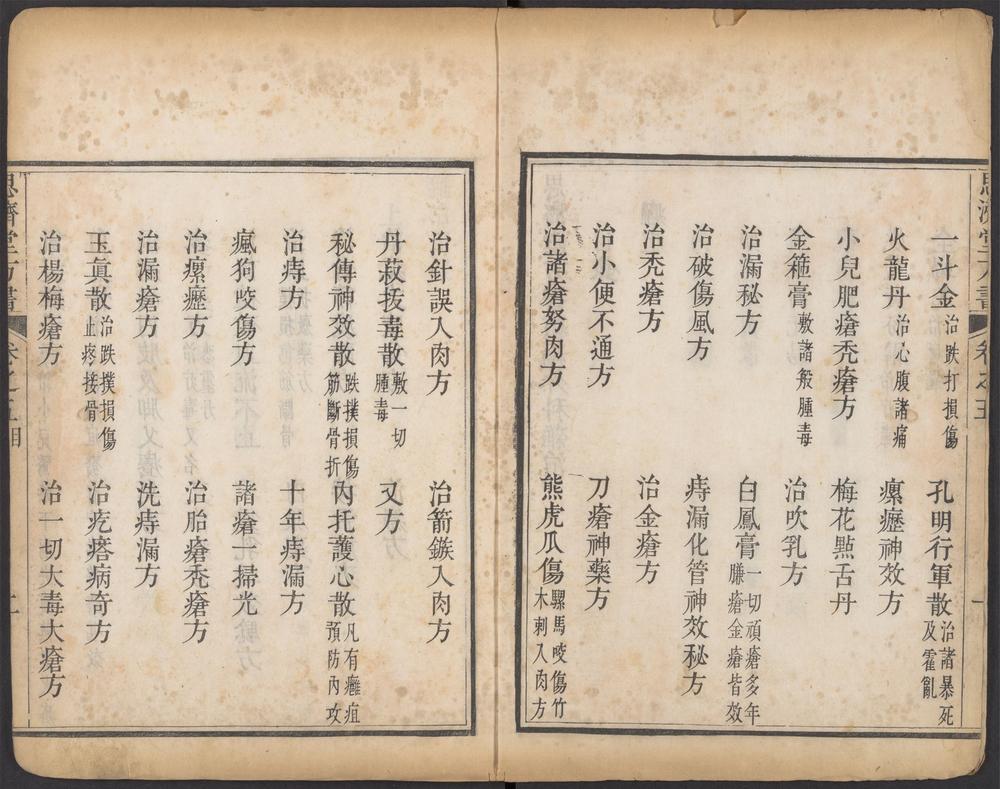 一斗金 治跌打損傷 孔明行軍散 治諸暴死及霍亂
火龍丹 治心腹諸痛 瘰癧神效方
小兒肥瘡禿瘡方 梅花點舌丹
金箍膏 敷諸般腫毒 治吹乳方
治漏秘方 白鳳膏 一切頑瘡多年臁瘡金瘡皆效
治破傷風方 痔漏化管神效秘方
治禿瘡方 治金瘡方
治小便不通方 刀瘡神藥方
治諸瘡努肉方 熊虎瓜傷 騾馬咬傷竹木刺入肉方
治針誤入肉方 治箭鏃入肉方
丹菽拔毒散 敷一切腫毒 又方
秘傳神效散 跌撲損傷筋斷骨折 內托護心散 凡有癰疽預防內攻
治痔方 十年痔漏方
瘋狗咬傷方 諸瘡一掃光
治瘰癧方 治胎瘡禿瘡方
治漏瘡方 洗痔漏方
玉眞散 治跌撲損傷止疼接骨 治疙瘩病奇方
治楊梅瘡方 治一切大毒大瘡方
思濟堂方書 卷之五目 二